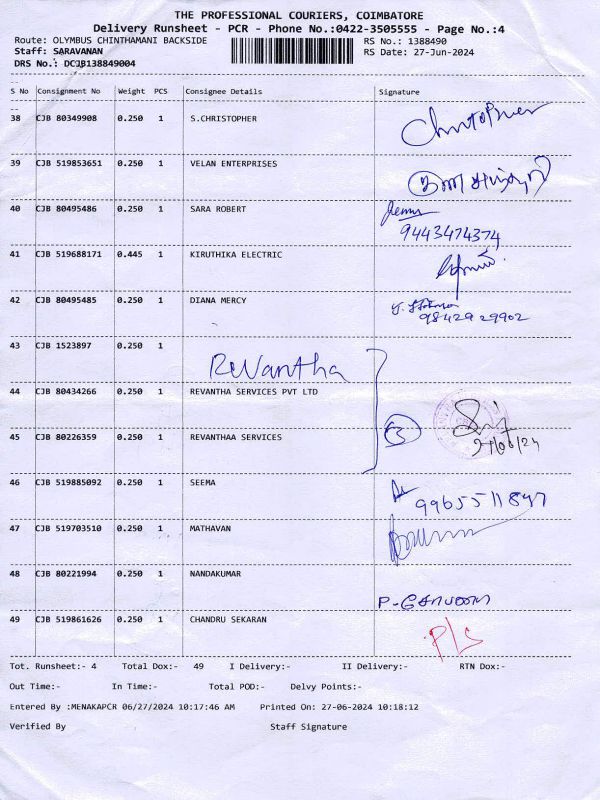 THE PROFESSIONAL COURIERS, COIMBATORE
Delivery Runsheet - PCR - Phone No.:0422-3505555 - Page No.:4
Route: OLYMBUS CHINTHAMANI BACKSIDE RS No.: 1388490
Staff: SARAVANAN RS Date: 27-Jun-2024
DRS No.: DCJB138849004
S No Consignment No Weight PCS Consignee Details Signature
38 CJB 80349908 0.250 1 S.CHRISTOPHER Christopher
39 CJB 519853651 0.250 1 VELAN ENTERPRISES
40 CJB 80495486 0.250 1 SARA ROBERT
9443474374
41 CJB 519688171 0.445 1 KIRUTHIKA ELECTRIC
42 CJB 80495485 0.250 1 DIANA MERCY
98429 29902
43 CJB 1523897 0.250 1
Revantha
44 CJB 80434266 0.250 1 REVANTHA SERVICES PVT LTD
45 CJB 80226359 0.250 1 REVANTHAA SERVICES 3
27/06/24
46 CJB 519885092 0.250 1 SEEMA
9965511847
47 CJB 519703510 0.250 1 MATHAVAN
48 CJB 80221994 0.250 1 NANDAKUMAR
49 CJB 519861626 0.250 1 CHANDRU SEKARAN P/S
Tot. Runsheet:- 4 Total Dox:- 49 I Delivery:- II Delivery:- RTN Dox:-
Out Time:- In Time:- Total POD:- Delvy Points:-
Entered By :MENAKAPCR 06/27/2024 10:17:46 AM Printed On: 27-06-2024 10:18:12
Verified By Staff Signature